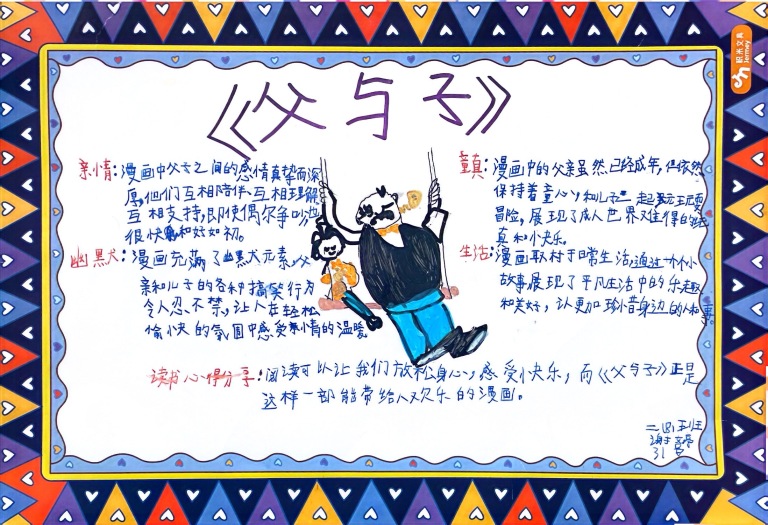 《父与子》
亲情:漫画中父子之间的感情真挚而深
厚,他们互相陪伴、互相理解
互相支持,即使偶尔争吵也
很快和好如初。
幽默:漫画充满了幽默元素,父
亲和儿子的各种搞笑行为
令人忍不禁,让人在轻松
愉快的氛围中感受亲情的温暖
童真:漫画中的父亲虽然已经成年,但依然
保持着童心,和儿子一起玩耍
冒险,展现了成人世界难得的纯
真和快乐。
生活:漫画取材于日常生活,通过一个个小
故事展现了平凡生活中的乐趣
和美好,让人更加珍惜身边的人和事。
读书心得分享:阅读可以让我们放松身心,感受快乐,而《父与子》正是
这样一部能带给人欢乐的漫画。
二(四)班
谢
31号
积米文具
Jermey